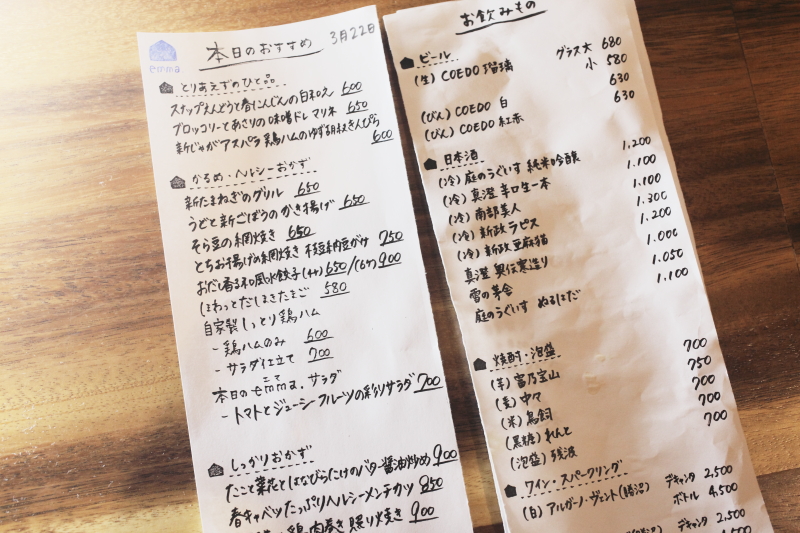 emma
本日のおすすめ
3月22日
とりあえずのひと品
スナップえんどうと春にんじんの白和え 600
ブロッコリーとあさりの味噌ドレマリネ 650
新じゃがアスパラ鶏ハムのゆず胡椒きんぴら 600
かるめ・ヘルシーおかず
新たまねぎのグリル 650
うどと新ごぼうのかき揚げ 650
そら豆の網焼き 650
とちお揚げの網焼き 納豆 750
おだし香る和風水餃子(4ヶ)650/(6ヶ)900
ほわっとだしまきたまご 580
自家製しっとり鶏ハム
- 鶏ハムのみ 600
- サラダ仕立て 700
本日のemma.サラダ
- トマトとジューシーフルーツの彩りサラダ 700
しっかりおかず
たこと菜花とはなびらたけのバター醤油炒め 900
春キャベツたっぷりヘルシーメンチカツ 850
鶏肉巻き 照り焼き 900
お飲みもの
ビール
(生) COEDO 瑠璃 グラス大 680
小 580
(びん) COEDO 白 630
(びん) COEDO 紅赤 630
日本酒
(冷) 庭のうぐいす 純米吟醸 1.200
(冷) 真澄 辛口生一本 1.100
(冷) 南部美人 1.100
(冷) 新政 ラピス 1.300
(冷) 新政 亜麻猫 1.200
真澄 奥伝寒造り 1.000
雪の茅舎 1.050
庭のうぐいす ぬるはだ 1.100
焼酎・泡盛
(芋) 富乃宝山 700
(麦) 中々 750
(米) 鳥飼 700
(黒糖) れんと 700
(泡盛) 残波 700
ワイン・スパークリング
(白) アルガーノ・ヴェント(勝沼) デキャンタ 2,500
ボトル 4,500
デキャンタ 2,500